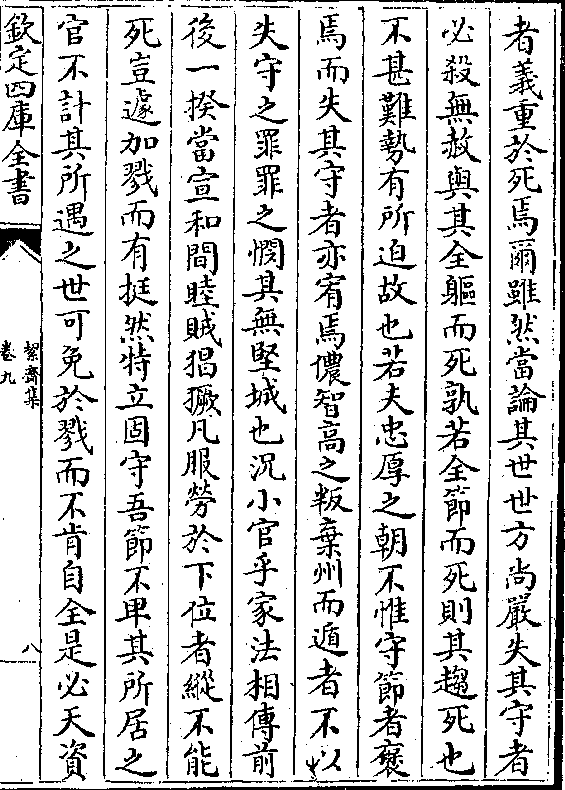 者義重於死焉爾雖然當論其世世方尚嚴失其守者
必殺無赦與其全軀而死孰若全節而死則其趨死也
不甚難勢有所迫故也若夫忠厚之朝不惟守節者襃
焉而失其守者亦宥焉儂智高之叛棄州而遁者不以
失守之罪罪之憫其無堅城也況小官乎家法相傳前
後一揆當宣和間睦賊猖獗凡服勞於下位者縱不能
死豈遽加戮而有挺然特立固守吾節不卑其所居之
官不計其所遇之世可免於戮而不肯自全是必天資
欽定四庫全書
絜齋集
卷九
八